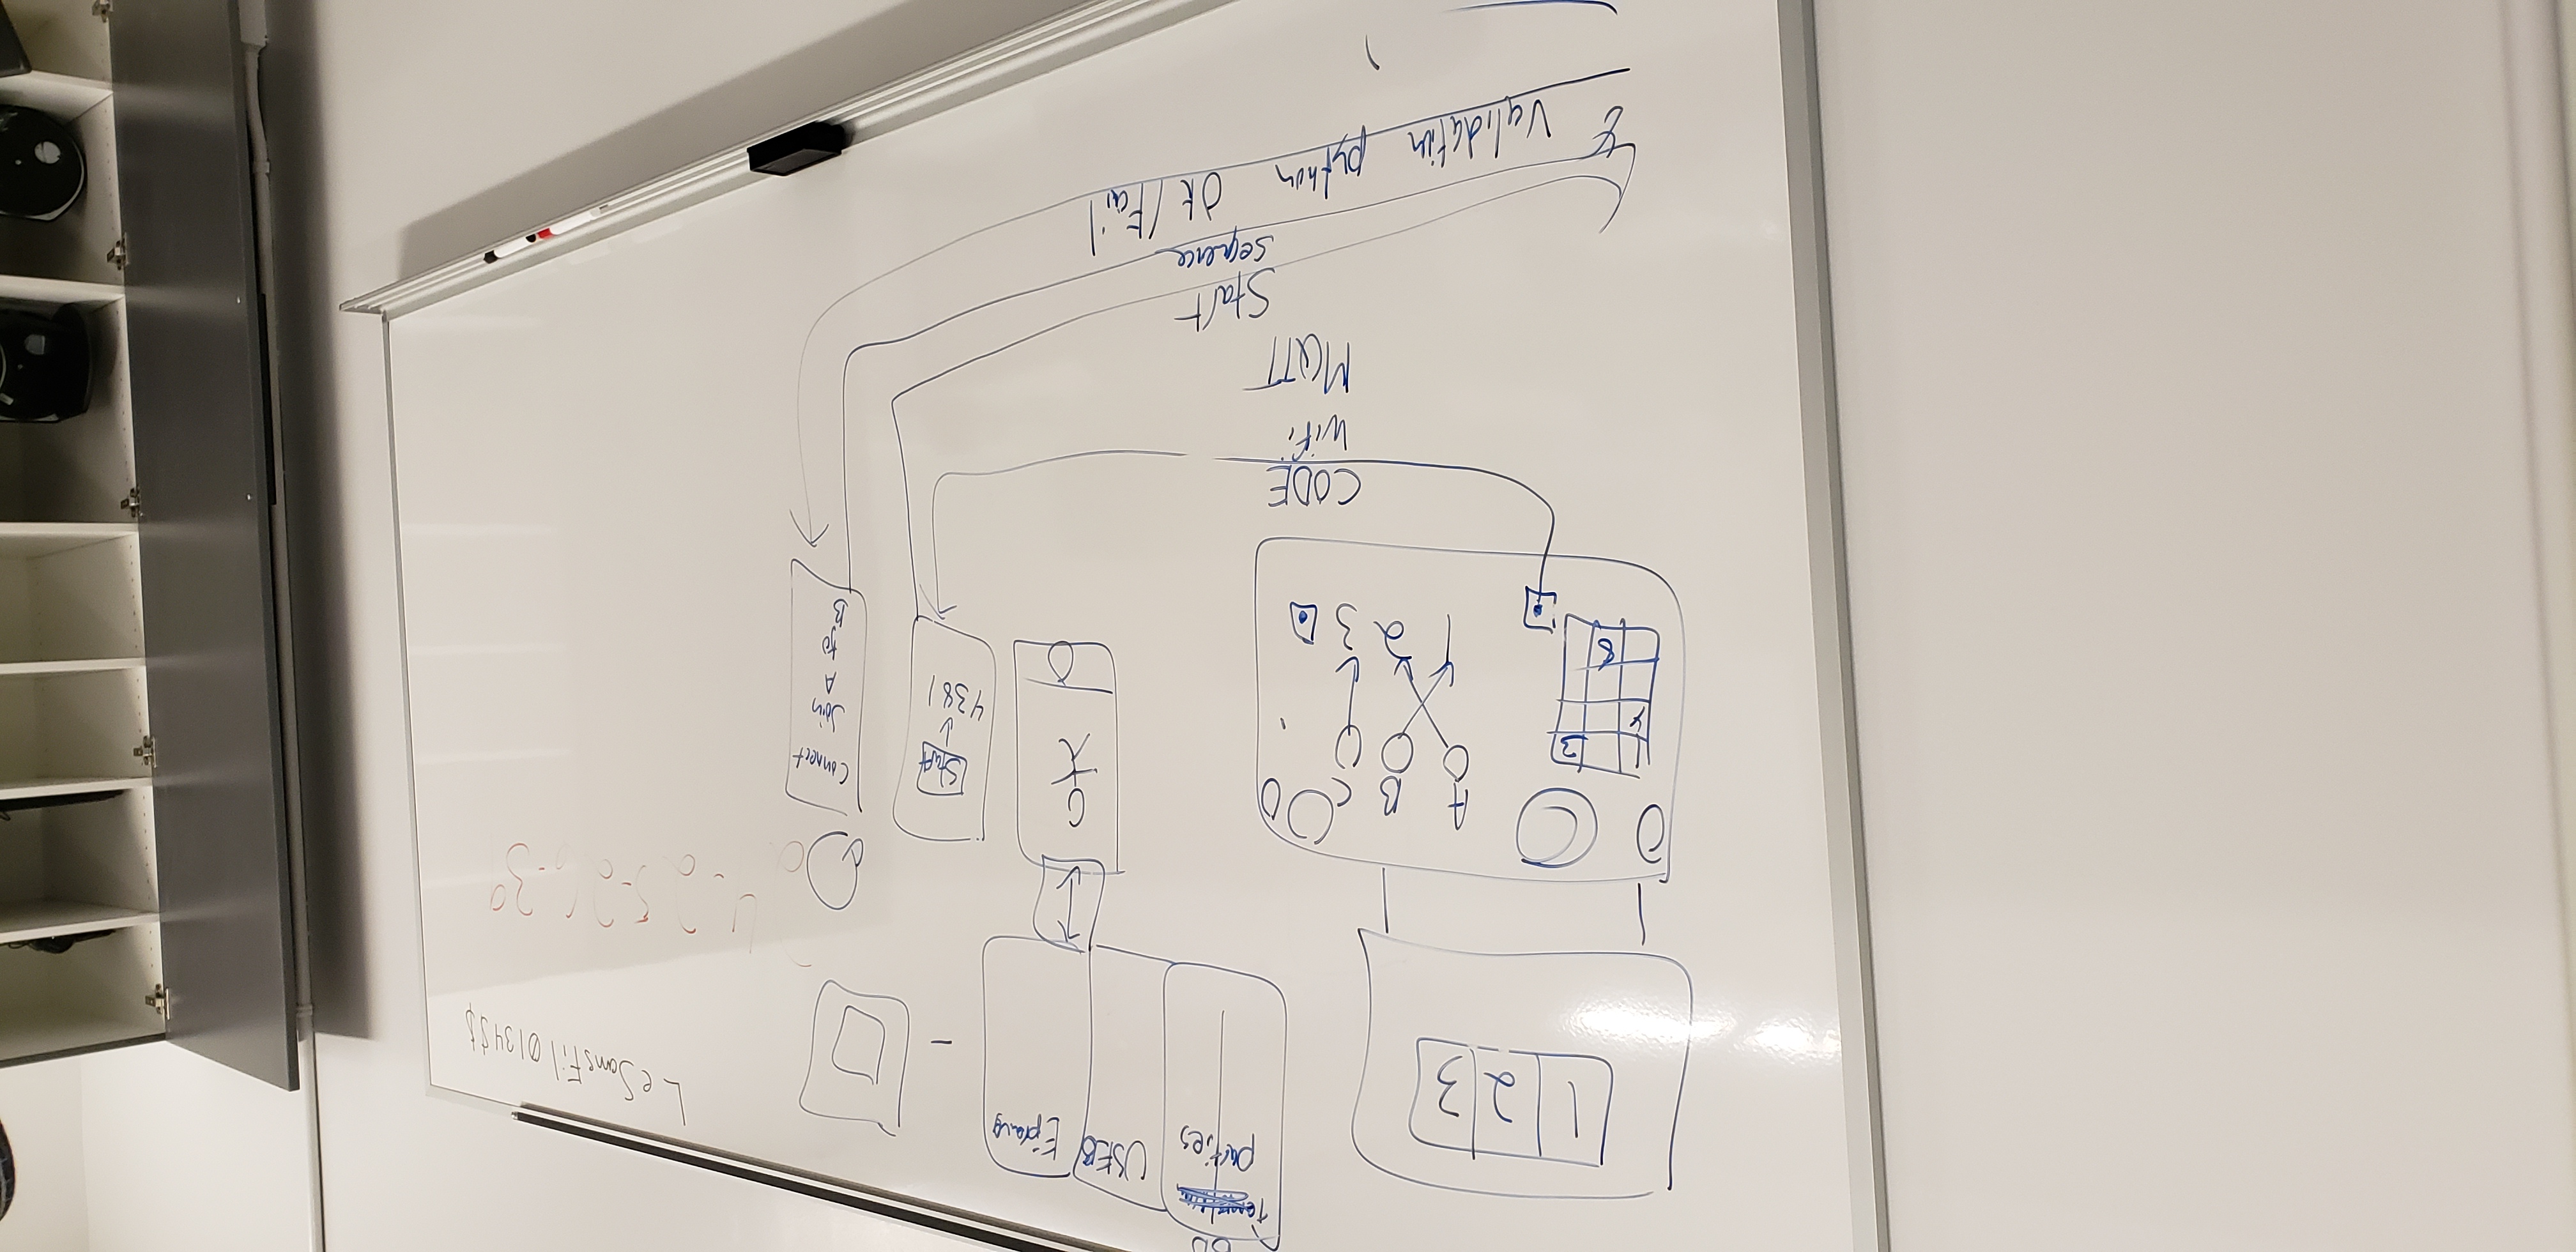 BD
parties
USER
1 2 3
LeSansFil 0134$$
4-25-26-30
A B C
1 3
4
8
1 2 3
Start
4381
Connect
Join
A
to
B
CODE
Wifi
MQTT
Start
sequence
Validation python Ok/Fail